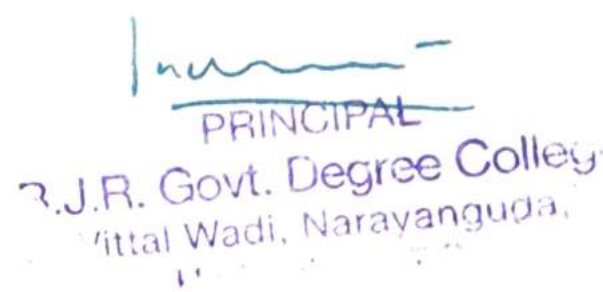 PRINCIPAL
.J.R. Govt. Degree Colleg
ittal Wadi, Narayanguda,